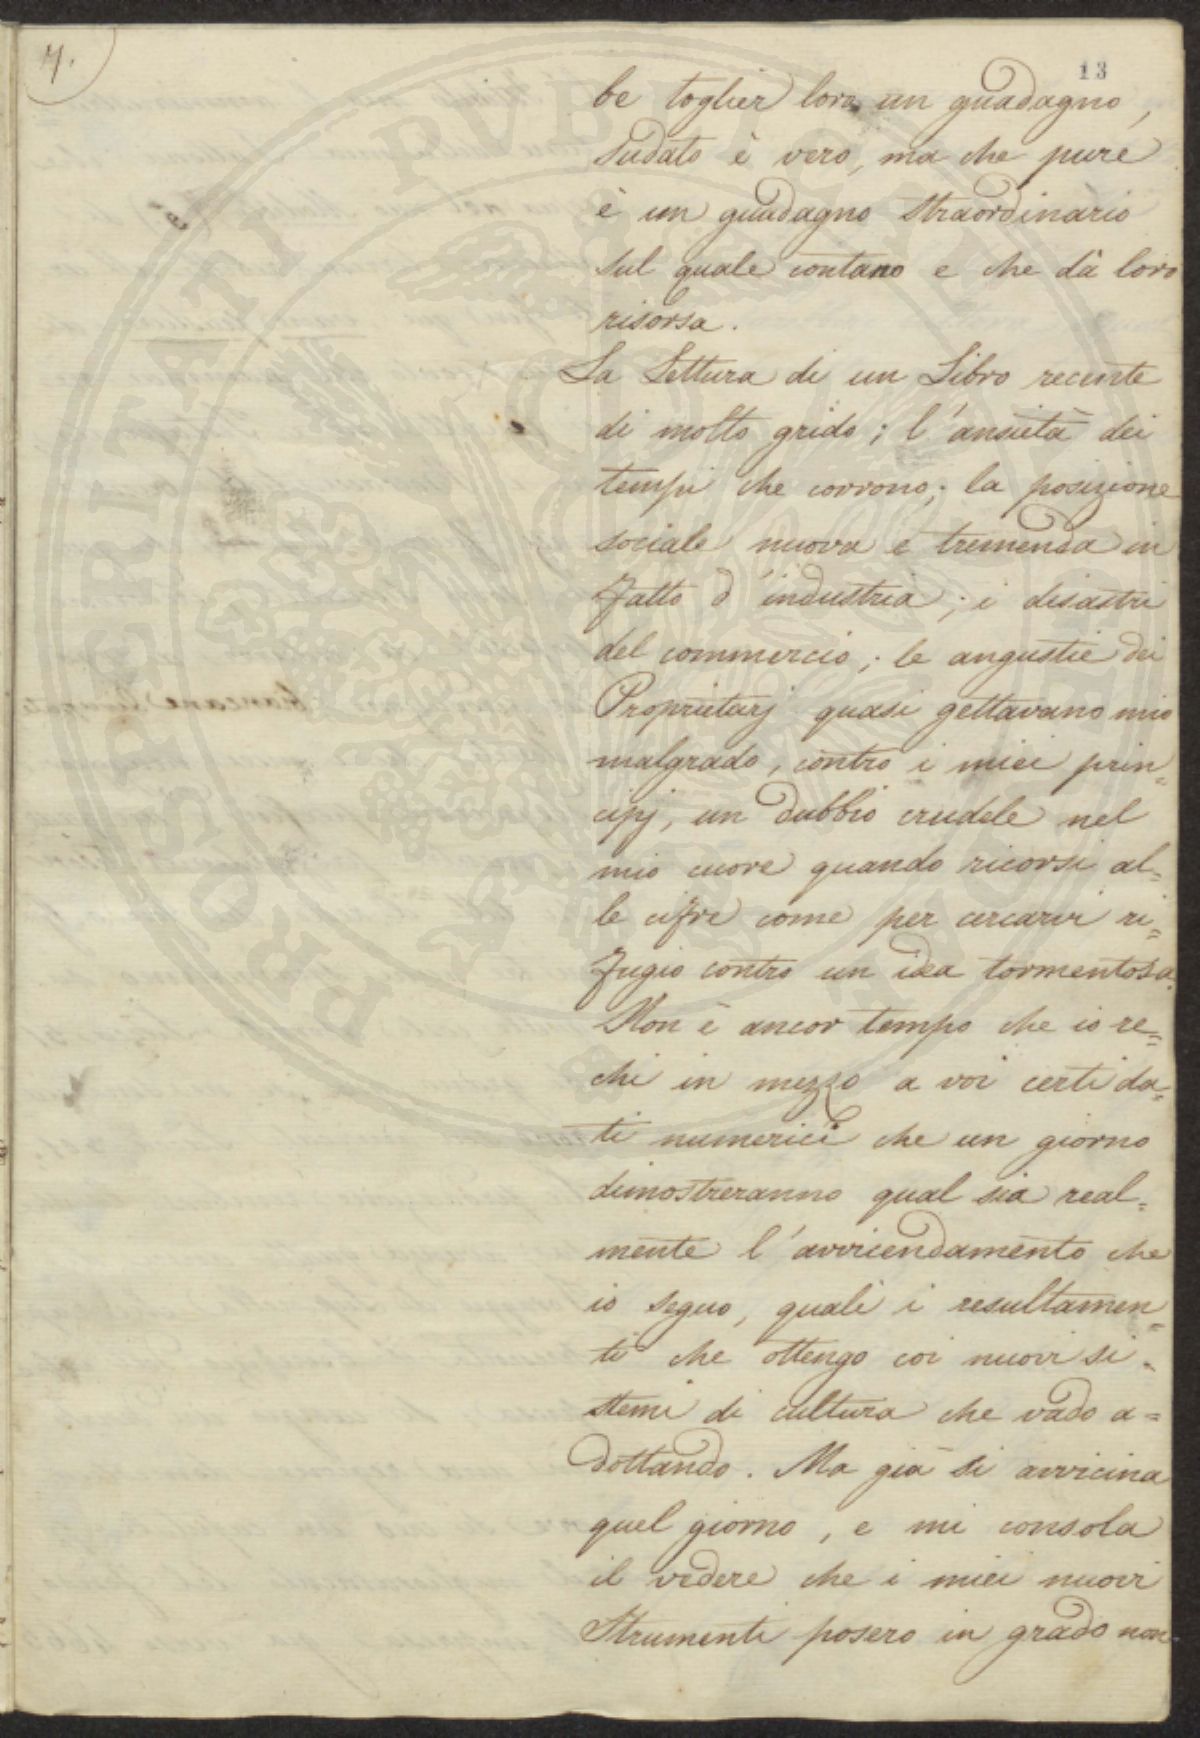 7.
13
be toglier loro un guadagno,
sudato è vero, ma che pure
è un guadagno straordinario
sul quale contano e che dà loro
risorsa.
La Lettura di un Libro recente
di molto grido; l'ansietà dei
tempi che corrono; la posizione
sociale nuova e tremenda in
fatto d'industria; i disastri
del commercio; le angustie dei
Proprietarj quasi gettavano mio
malgrado, contro i miei prin=
cipj, un dubbio crudele nel
mio cuore quando ricorsi al=
le cifre come per cercarvi ri=
fugio contro un idea tormentosa.
Non è ancor tempo che io re=
chi in mezzo a voi certi da=
ti numerici che un giorno
dimostreranno qual sia real=
mente l'avvicendamento che
io seguo, quali i resultamen=
ti che ottengo coi nuovi si=
stemi di cultura che vado a=
dottando. Ma già si avvicina
quel giorno, e mi consola
il vedere che i miei nuovi
Strumenti posero in grado non
PROSPERITATI PVBLICAE